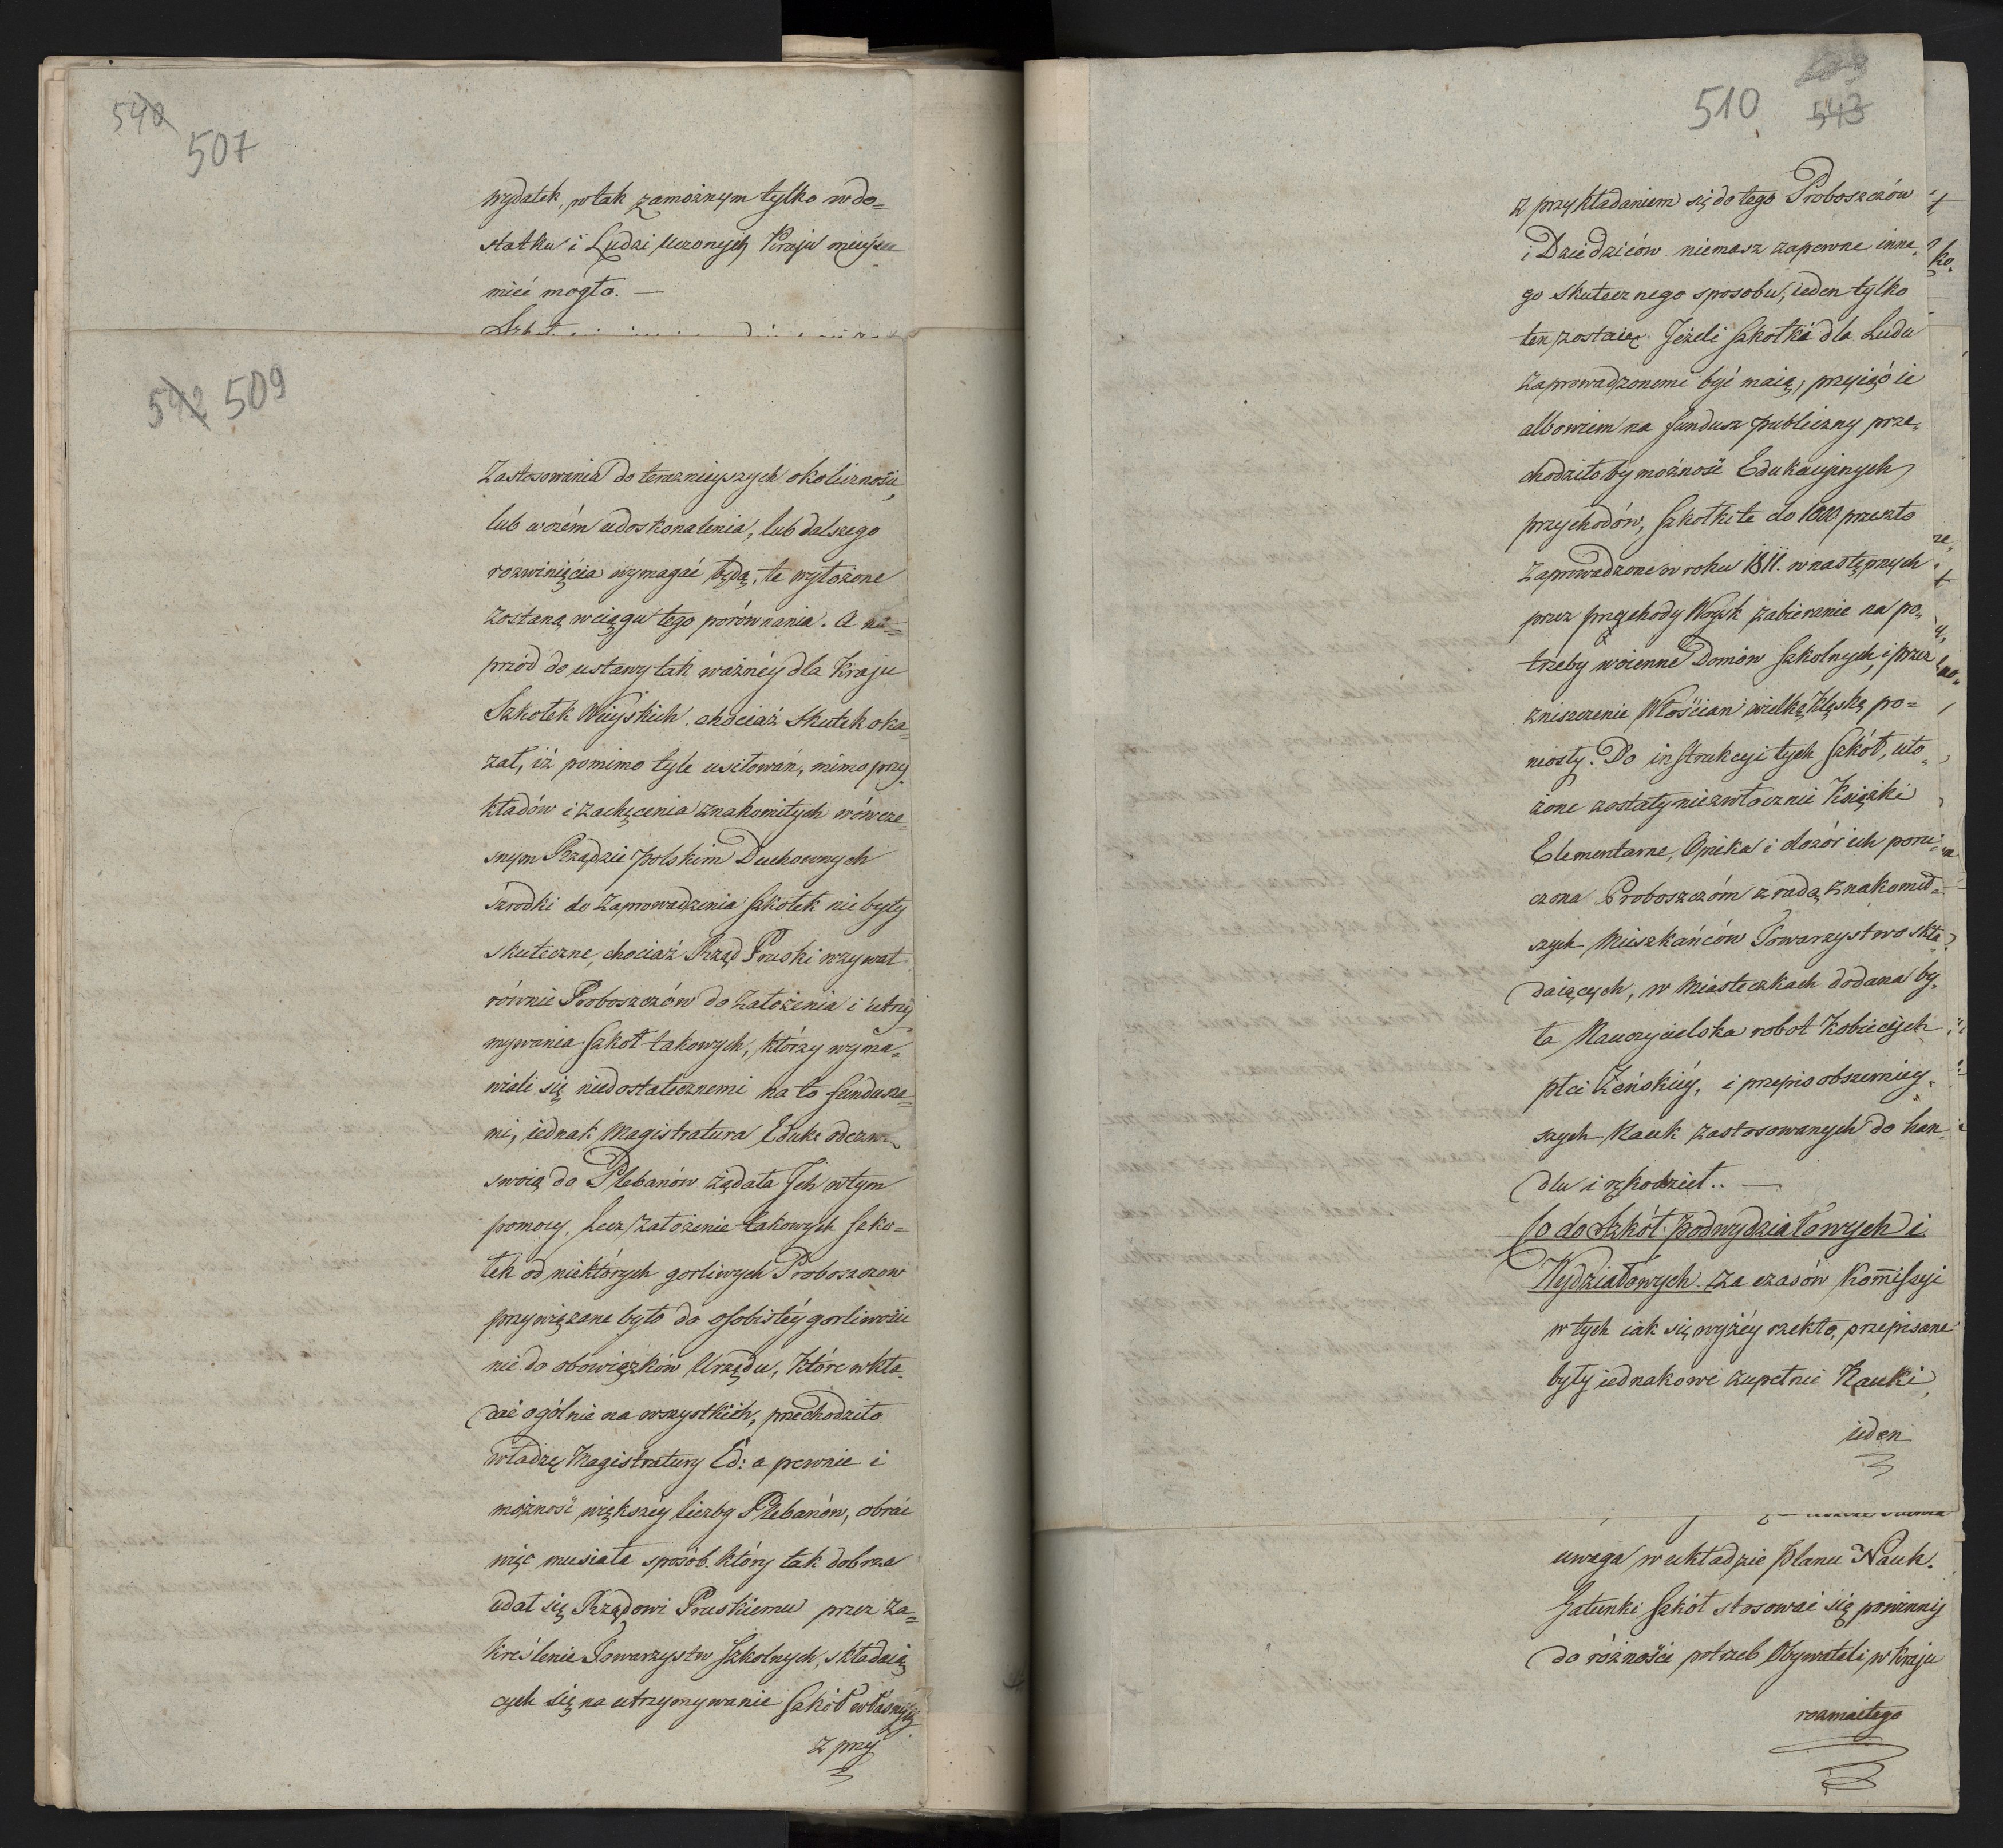 540
507
wydatek, w tak zamożnym tylko w do=
statku i Ludzi uczonych Kraju mieysce
mieć mogło. —
542 509
Zastosowania do teraznieyszych okoliczności
lub w czém udoskonalenia, lub dalszego
rozwinięcia wymagać będą, te wyłożone
zostaną w ciągu tego porównania. A na=
przód do ustawy tak ważnéy dla Kraju
Szkołek Wieyskich. chociaż skutek oka=
zał, iż pomimo tyle usiłowań, mimo przy
kładów i zachęcenia znakomitych wówcze=
snym Rządzie polskim Duchownych
śrzodki do zaprowadzenia szkołek nie były
skuteczne, chociaż Rząd Pruski wzywał
równie Proboszczów do założenia i utrzy
mywania szkół takowych, którzy wyma=
wiali się niedostatecznemi na to fundusza=
mi, iednak Magistratura Eduk: odezwą
swoią do Plebanów żądała Ich w tym
pomocy, Lecz założenie takowych szko=
łek od niektórych gorliwych Proboszczow
przywiązane było do osobistéy gorliwości
nie do obowiązków Urzędu, które wkła=
dać ogólnie na wszystkich, przechodziło
władzę Magistratury Ed: a pewnie i
możność większéy liczby Plebanów, obrać
więc musiała sposób. który tak dobrze
udał się Rządowi Pruskiemu przez za=
kreślenie Towarzystw szkolnych, składaią
cych się na utrzymywanie szkół własnych
z przy
510 543
z przykładaniem się do tego Proboszczów
i Dziedziców niemasz zapewne inne=
go skutecznego sposobu, ieden tylko
ten zostaie. Jeżeli szkołki dla Ludu
zaprowadzonemi być maią, przyiąć ie
albowiem na fundusz publiczny prze=
chodziło by możność Edukacyinych
przychodów, szkołki te do 1000 przeszło
zaprowadzone w roku 1811. w następnych
przez przechody Woysk zabieranie na po=
trzeby woienne Domów szkolnych, i przez
zniszczenie Włościan wielką klęskę po=
niosły. Do instrukcyi tych szkół, uło=
żone zostały niezwłocznie Książki
Elementarne, Opieka i dozór ich poru=
czona Proboszczóm z radą znakomit=
szych Mieszkańców Towarzystwo skła=
daiących, w Miasteczkach dodana by=
ła Nauczycielka robot kobiecych
płci żeńskiéy, i przepis obszerniey=
szych Nauk zastosowanych do han=
dlu i rękodzieł.. —
Co do szkół podwydziałowych i
Wydziałowych. za czasów Kom̄issyi
w tych iak się wyżéy rzekło, przepisane
były iednakowe zupełnie Nauki,
ieden
uwaga w układzie planu Nauk.
Gatunki szkół stosować się powinny
do różności potrzeb Obywateli, w kraju
rozmaitego